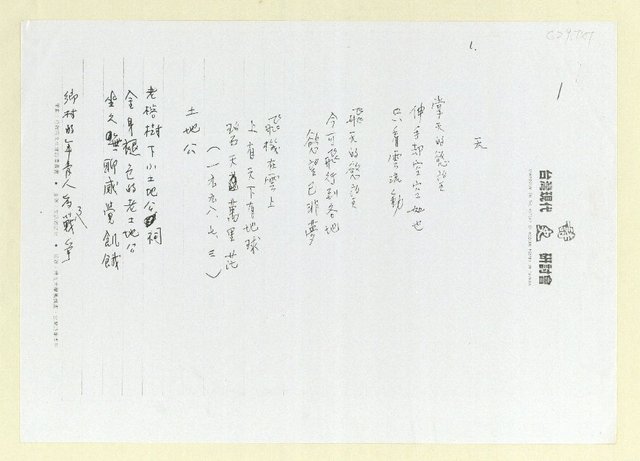 1.
天
掌天的慾望
伸手却空空如也
只看雲流動
飛天的慾望
今可飛行到各地
慾望已非夢
飛機在雲上
上有天下有地球
碧天萬里茫
(一九九八、七、三)
土地公
老榕樹下小土地公祠
金身褪色的老土地公
坐久無聊感覺飢餓
鄉村的年青人為戰爭
台灣現代詩史研討會